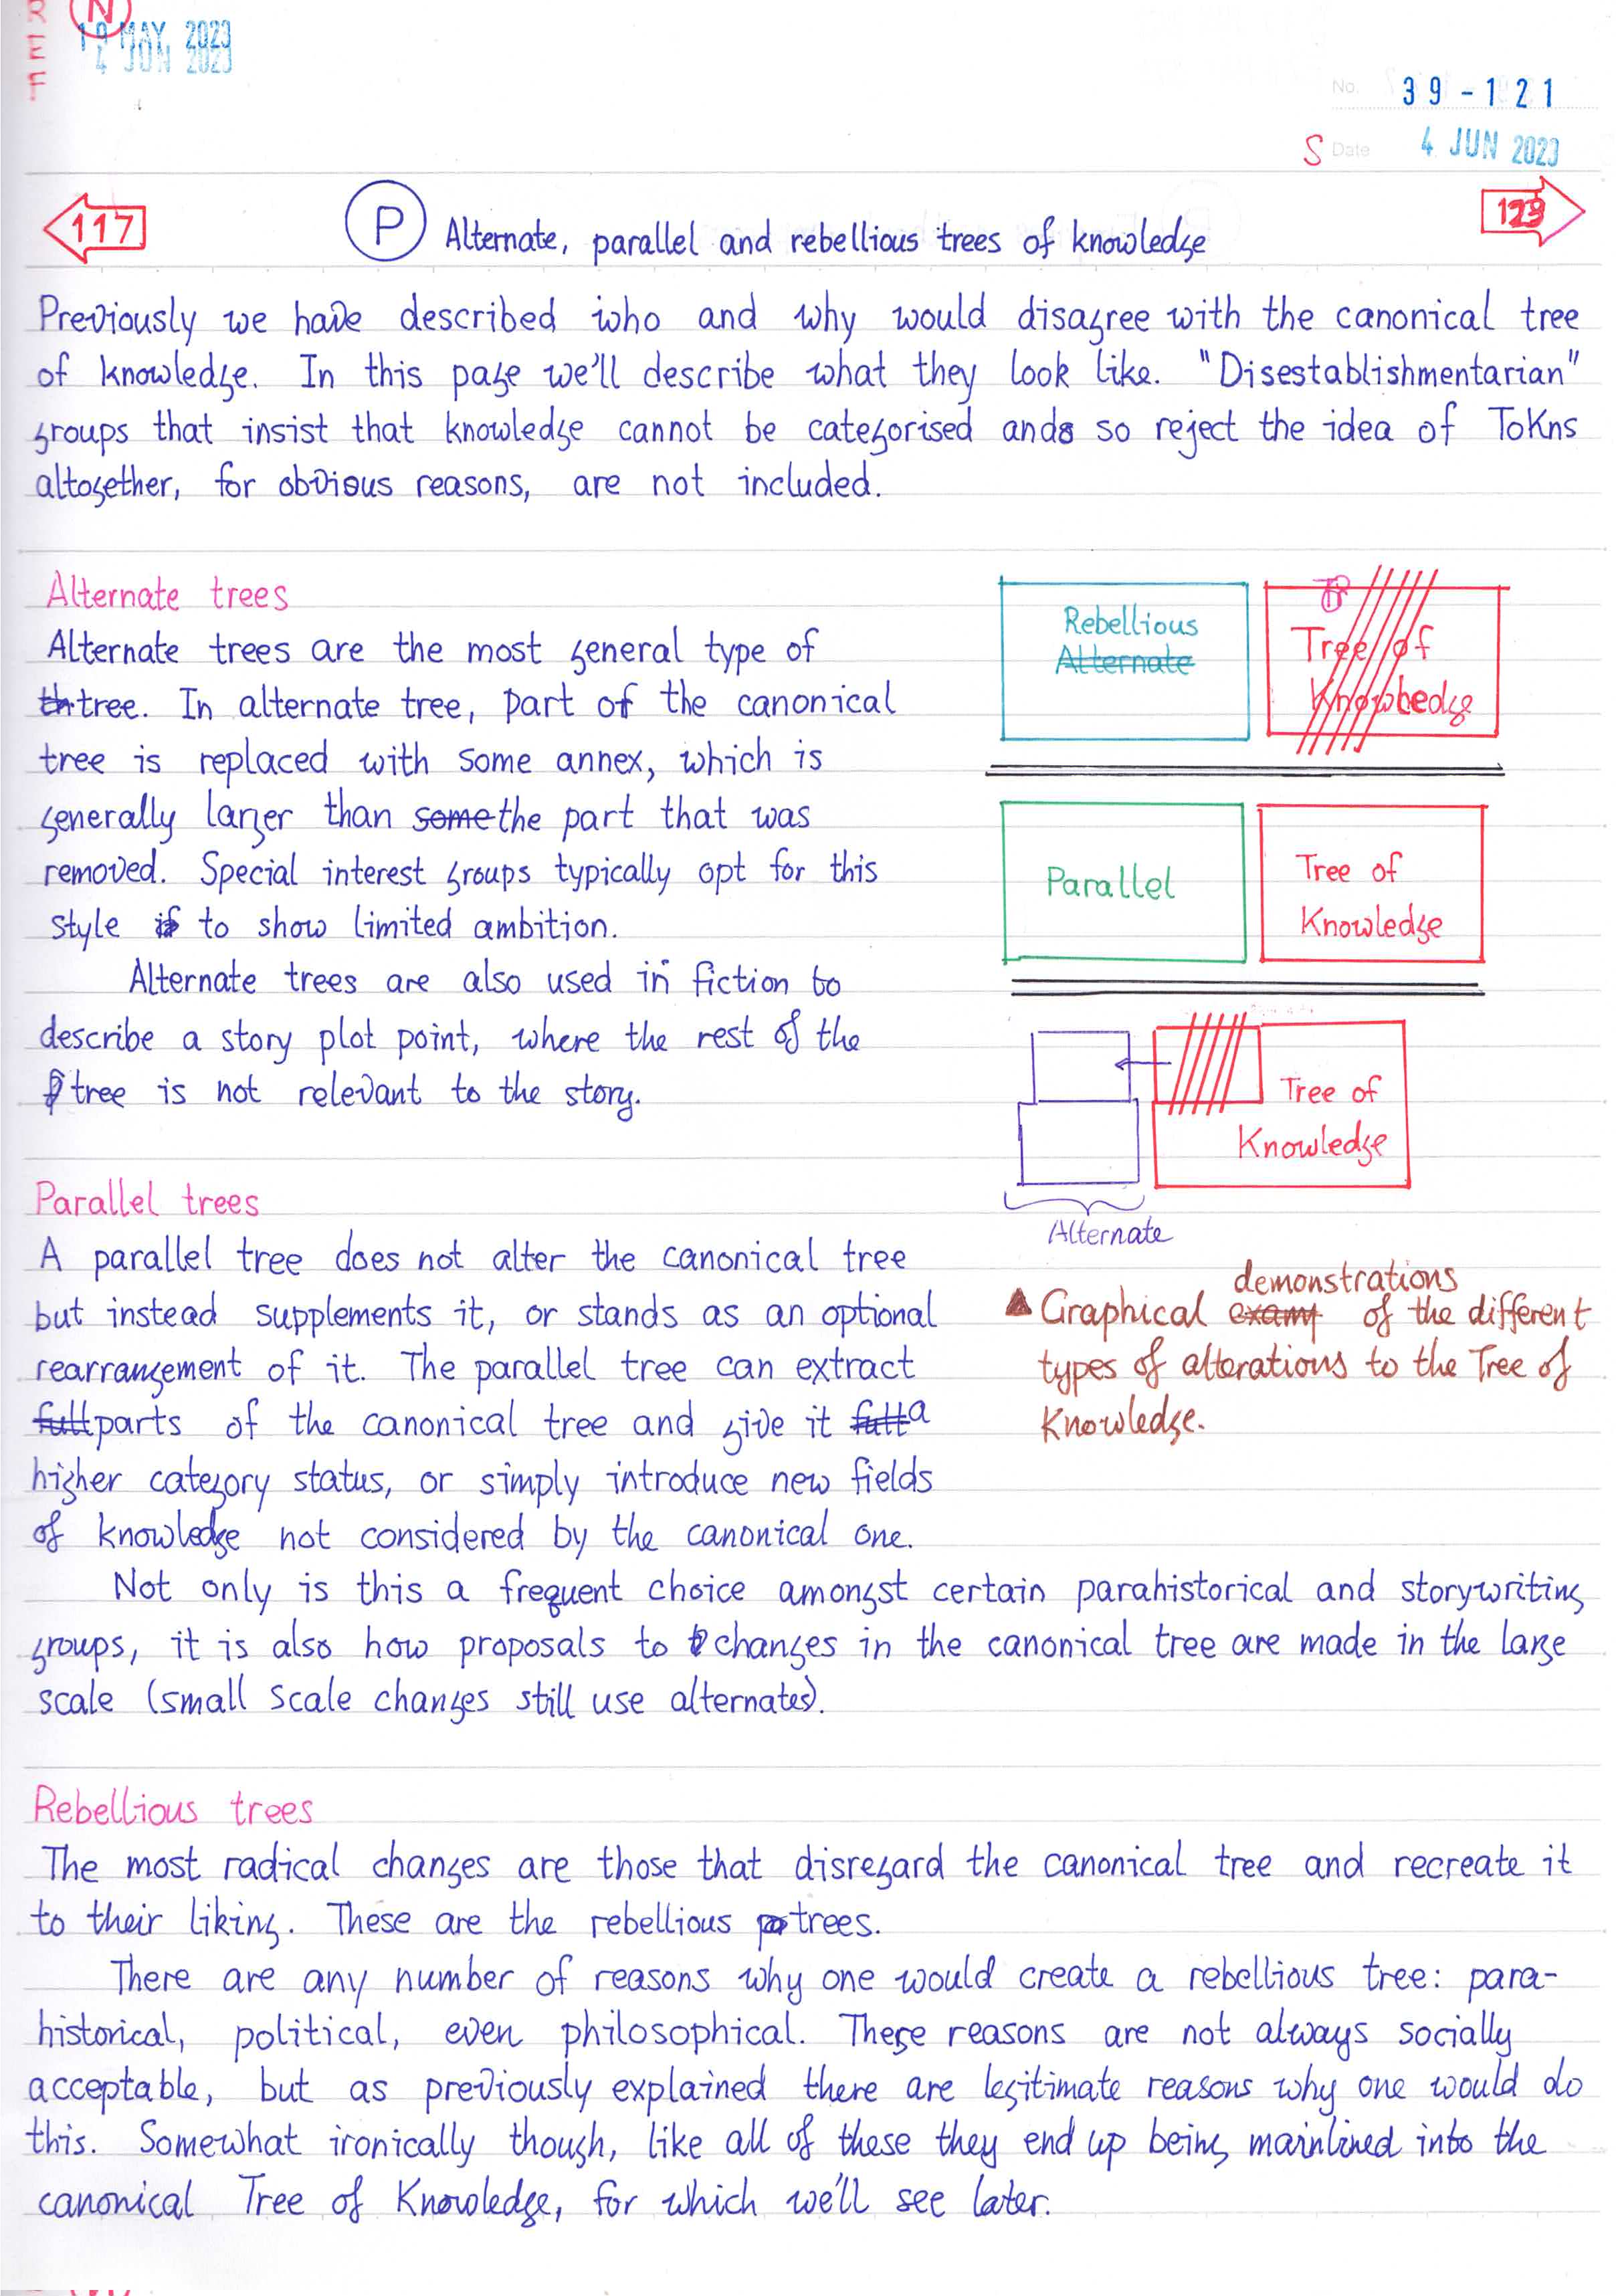 REF
N
19 MAY 2023
4 JUN 2023
No. 39-121
S Date 4 JUN 2023
117
P Alternate, parallel and rebellious trees of knowledge
123
Previously we have described who and why would disagree with the canonical tree
of knowledge. In this page we'll describe what they look like. "Disestablishmentarian"
groups that insist that knowledge cannot be categorised and so reject the idea of ToKns
altogether, for obvious reasons, are not included.
Alternate trees
Alternate trees are the most general type of
th tree. In alternate tree, part of the canonical
tree is replaced with some annex, which is
generally larger than some the part that was
removed. Special interest groups typically opt for this
style to show limited ambition.
Alternate trees are also used in fiction to
describe a story plot point, where the rest of the
tree is not relevant to the story.
Rebellious
Alternate
Tree of
Knowledge
Parallel
Tree of
Knowledge
Tree of
Knowledge
Alternate
demonstrations
▲ Graphical examp of the different
types of alterations to the Tree of
Knowledge.
Parallel trees
A parallel tree does not alter the canonical tree
but instead supplements it, or stands as an optional
rearrangement of it. The parallel tree can extract
full parts of the canonical tree and give it full a
higher category status, or simply introduce new fields
of knowledge not considered by the canonical one.
Not only is this a frequent choice amongst certain parahistorical and storywriting
groups, it is also how proposals to changes in the canonical tree are made in the large
scale (small scale changes still use alternates).
Rebellious trees
The most radical changes are those that disregard the canonical tree and recreate it
to their liking. These are the rebellious trees.
There are any number of reasons why one would create a rebellious tree: para-
historical, political, even philosophical. These reasons are not always socially
acceptable, but as previously explained there are legitimate reasons why one would do
this. Somewhat ironically though, like all of these they end up being mainlined into the
canonical Tree of Knowledge, for which we'll see later.